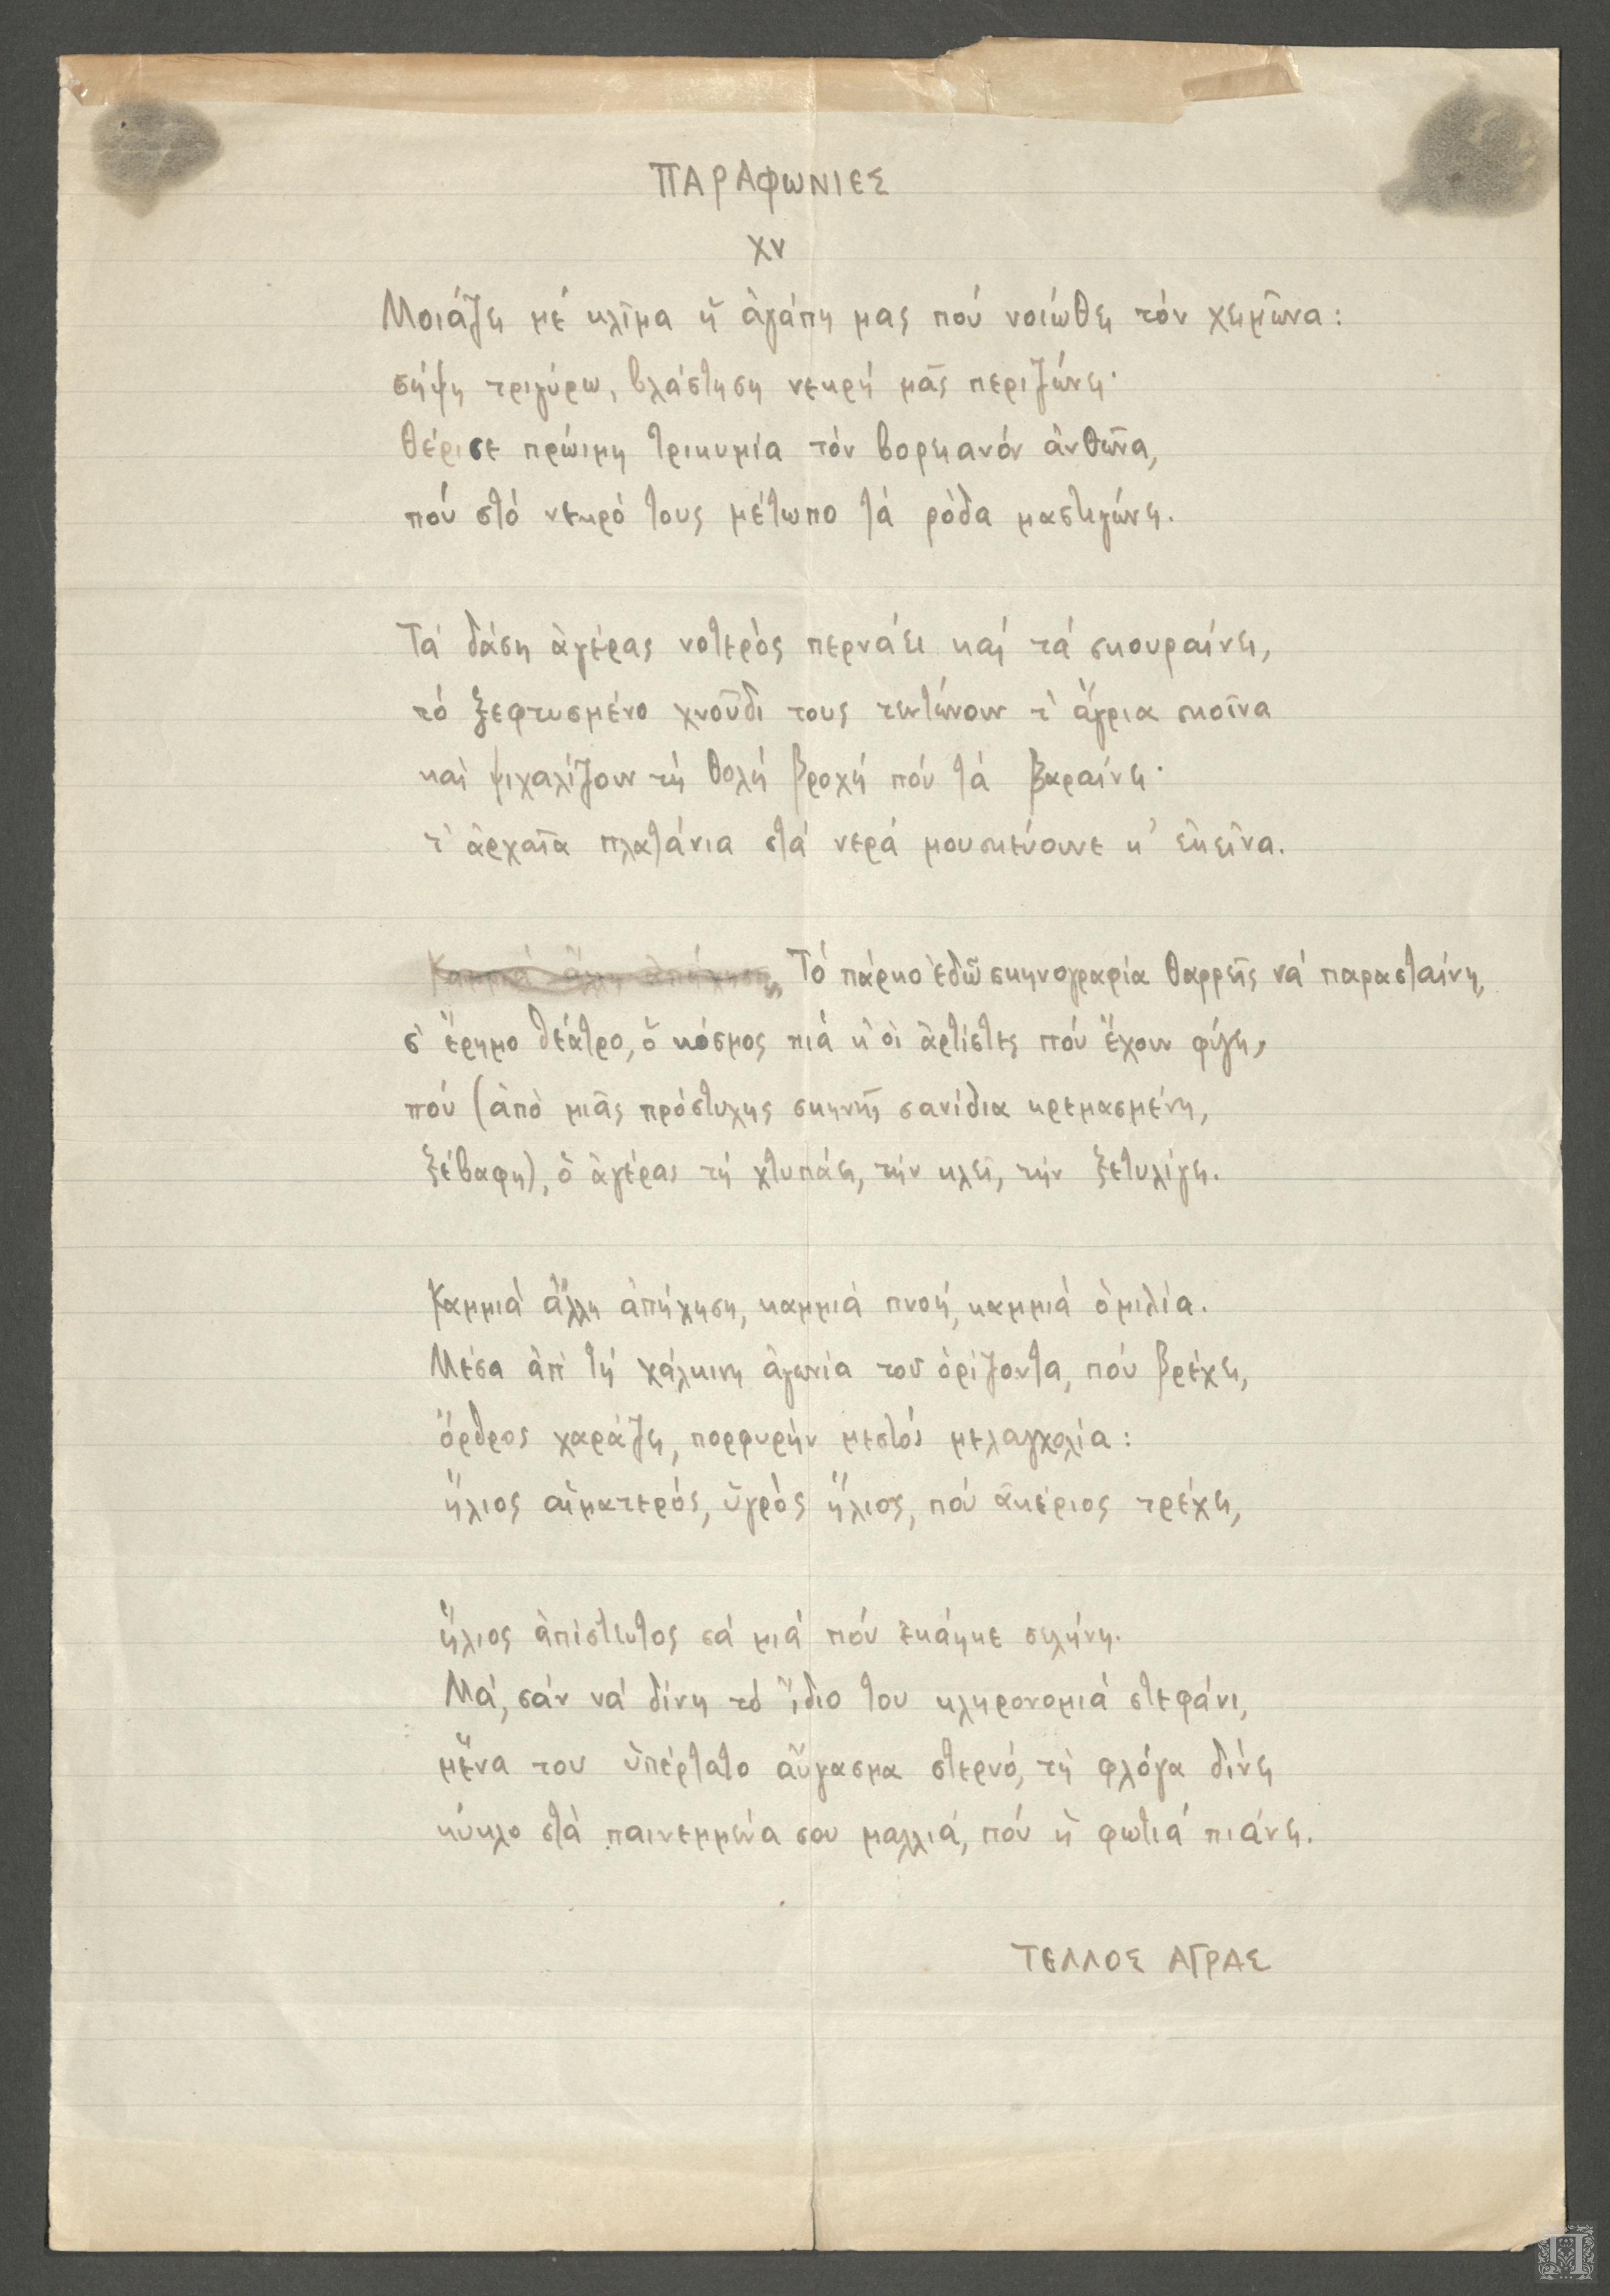 ΠΑΡΑΦΩΝΙΕΣ
XV
Μοιάζει μέ κλῖμα ἡ ἀγάπη μας πού νοιώθει τόν χειμῶνα:
σήψη τριγύρω, βλάστηση νεκρή μᾶς περιζώνει·
θέρισε πρώιμη τρικυμία τόν βορειανόν ἀνθῶνα,
πού στό νεκρό τους μέτωπο τά ρόδα μαστιγώνει.
Τά δάση ἀγέρας νοτερὸς περνάει καί τά σκουραίνει,
τό ξεφτυσμένο χνοῦδι τους τεντώνουν τ' ἄγρια σκοῖνα
καὶ ψιχαλίζουν τή θολή βροχή πού τά βαραίνει·
τ' ἀρχαῖα πλατάνια στά νερά μουσκεύουνε κ' ἐκεῖνα.
Καμμιά ἄλλη ἀπήχηση, Τό πάρκο ἐδῶ σκηνογραφία θαρρεῖς νά παρασταίνει,
σ' ἔρημο θέατρο, ὁ κόσμος πιά κ' οἱ ἀρτίστες πού ἔχουν φύγει,
πού (ἀπὸ μιᾶς πρόστυχης σκηνῆς σανίδια κρεμασμένη,
ξέβαφη), ὁ ἀγέρας τή χτυπάει, τήν κλεῖ, τήν ξετυλίγει.
Καμμιά ἄλλη ἀπήχηση, καμμιά πνοή, καμμιά ὁμιλία.
Μέσα ἀπ' τή χάλκινη ἀγωνία τοῦ ὁρίζοντα, πού βρέχει,
ὄρθρος χαράζει, πορφυρήν μεστός μελαγχολία:
ἥλιος αἱματερός, ὑγρός ἥλιος, πού ἀκέριος τρέχει,
ἥλιος ἀπίστευτος σά μιά πού ἐκάηκε σελήνη.
Μά, σάν νά δίνη τό ἴδιο του κληρονομιά στεφάνι,
μἕνα του ὑπέρτατο αὔγασμα στερνό, τή φλόγα δίνει
κύκλο στὰ παινεμμένα σου μαλλιά, πού ἡ φωτιά πιάνει.
ΤΕΛΛΟΣ ΑΓΡΑΣ